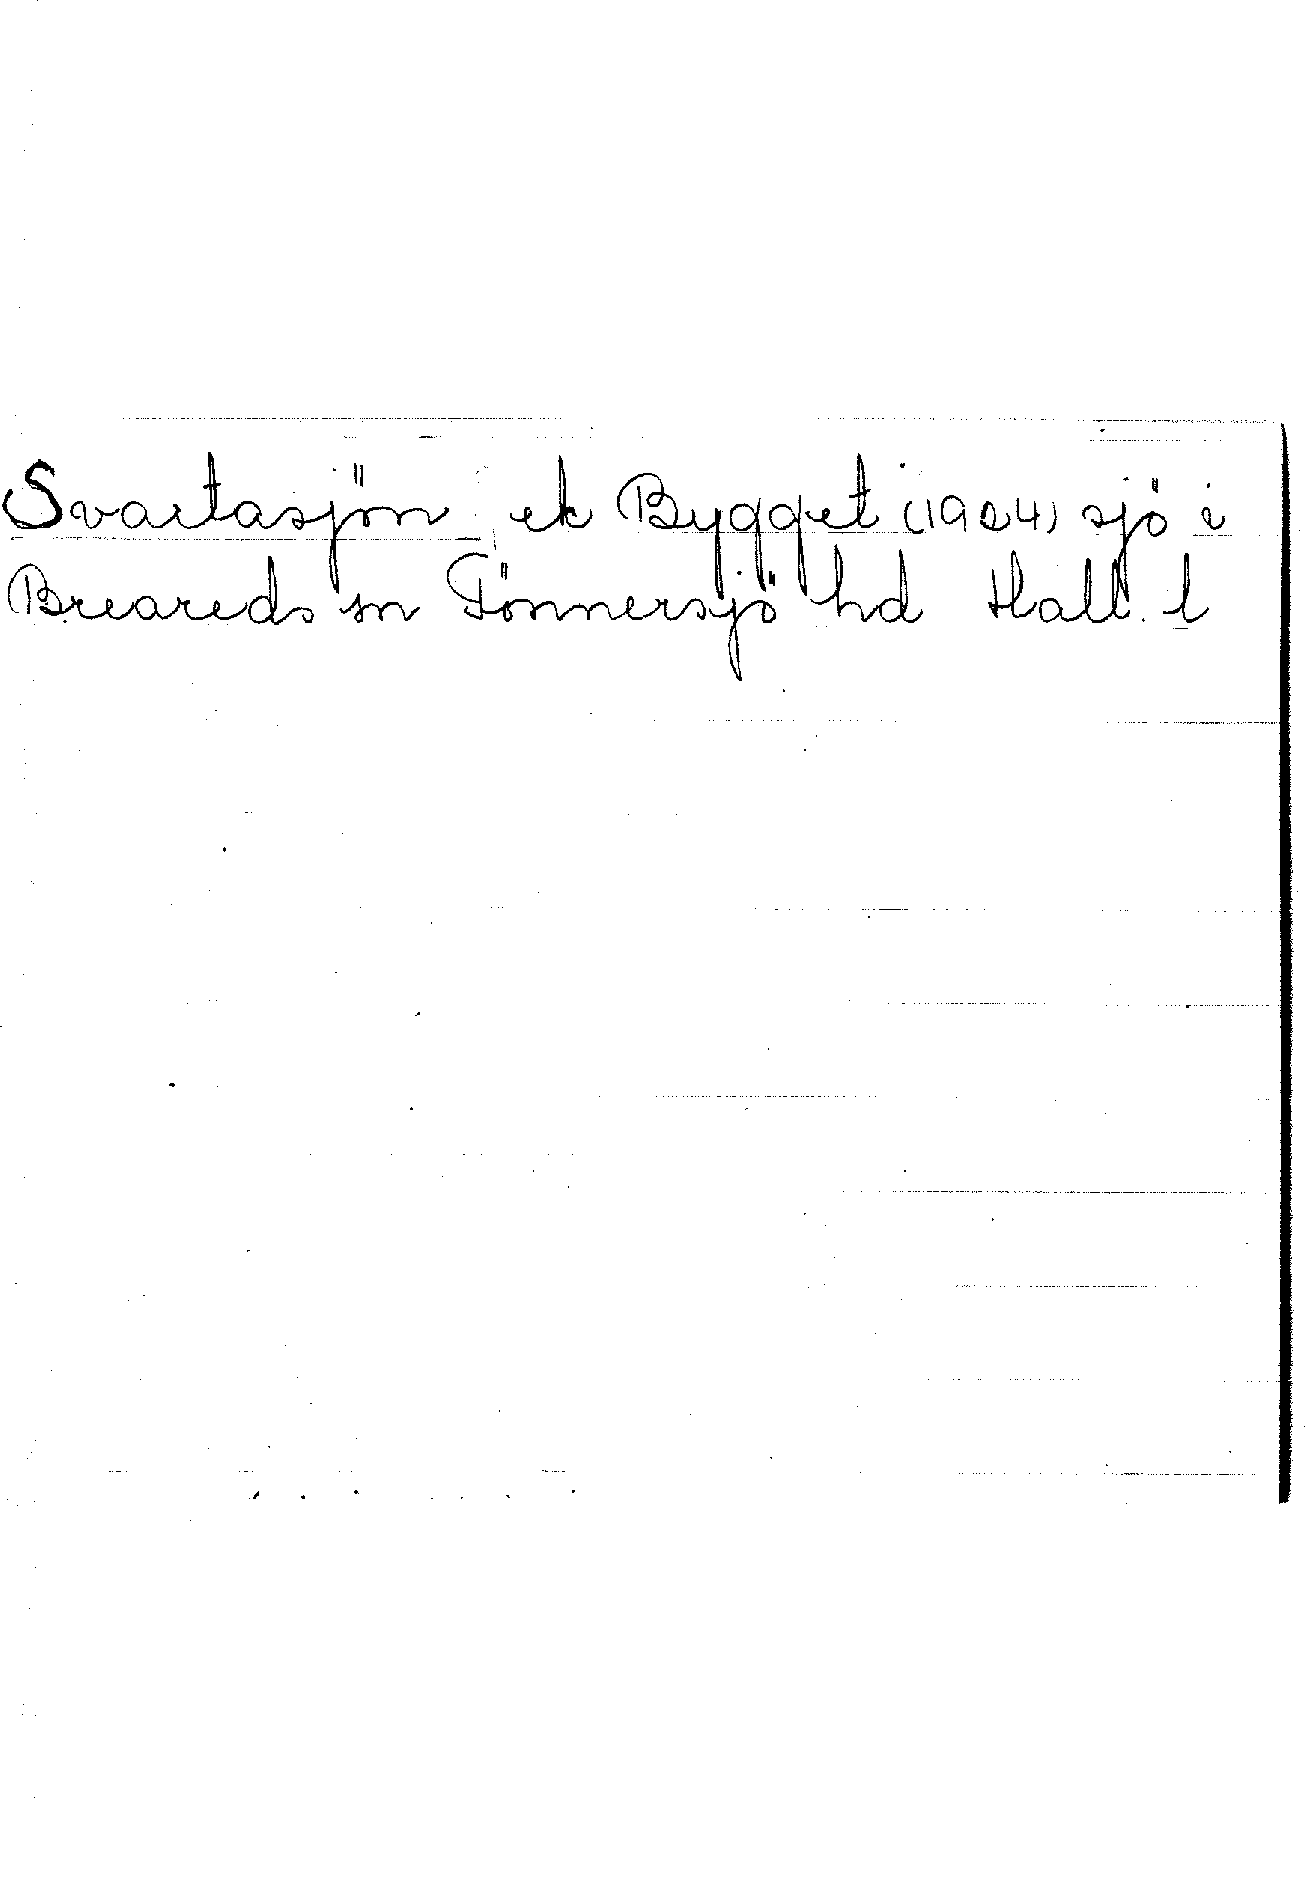 Svartasjön ek Bygget (1924) sjö i
Breareds sn Tönnersjö hd Hall. l